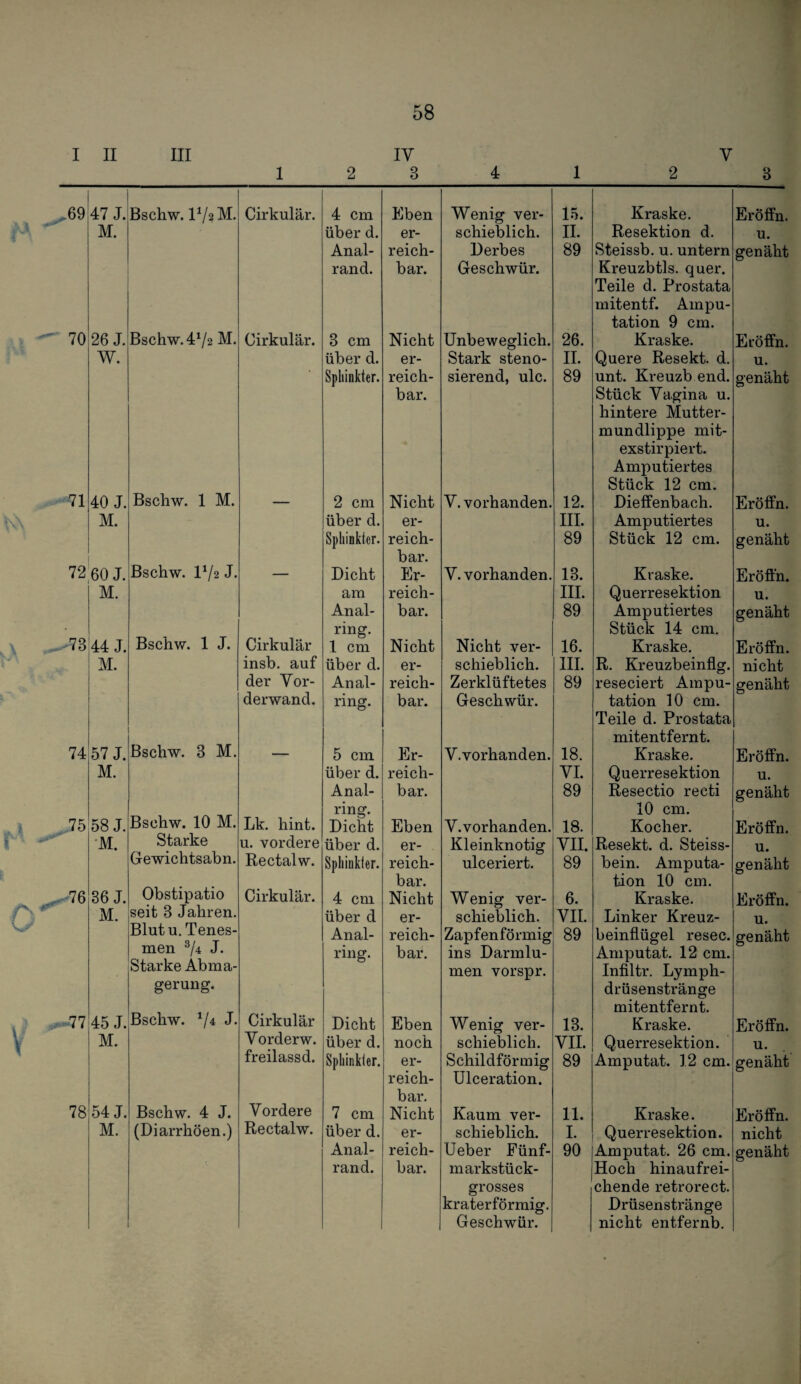 58
I II III IV V
1 2 3 4 1 2 3
69 47 J. Bschw. 1½ M. Cirkulär. 4 cm Eben Wenig ver- 15. Kraske. Eröffn.
M. über d. er- schieblich. II. Resektion d. u.
Anal- reich- Derbes 89 Steissb. u. untern genäht
rand. bar. Geschwür. Kreuzbtls. quer.
Teile d. Prostata
mitentf. Ampu-
tation 9 cm.
70 26 J. Bschw. 4½ M. Cirkulär. 3 cm Nicht Unbeweglich. 26. Kraske. Eröffn.
W. über d. er- Stark steno- II. Quere Resekt. d. u.
Sphinkter. reich- sierend, ulc. 89 unt. Kreuzb end. genäht
bar. Stück Vagina u.
hintere Mutter-
mundlippe mit-
exstirpiert.
Amputiertes
Stück 12 cm.
71 40 J. Bschw. 1 M. — 2 cm Nicht V. vorhanden. 12. Dieffenbach. Eröffn.
M. über d. er- III. Amputiertes u.
Sphinkter. reich- 89 Stück 12 cm. genäht
bar.
72 60 J. Bschw. 1½ J. — Dicht Er- V. vorhanden. 13. Kraske. Eröffn.
M. am reich- III. Querresektion u.
Anal- bar. 89 Amputiertes genäht
ring. Stück 14 cm.
73 44 J. Bschw. 1 J. Cirkulär 1 cm Nicht Nicht ver- 16. Kraske. Eröffn.
M. insb. auf über d. er- schieblich. III. R. Kreuzbeinflg. nicht
der Vor- Anal- reich- Zerklüftetes 89 reseciert Ampu- genäht
derwand. ring. bar. Geschwür. tation 10 cm.
Teile d. Prostata
mitentfernt.
74 57 J. Bschw. 3 M. — 5 cm Er- V.vorhanden. 18. Kraske. Eröffn.
M. über d. reich- VI. Querresektion u.
Anal- bar. 89 Resectio recti genäht
ring. 10 cm.
75 58 J. Bschw. 10 M. Lk. hint. Dicht Eben V.vorhanden. 18. Kocher. Eröffn.
M. Starke u. vordere über d. er- Kleinknotig VII. Resekt. d. Steiss- u.
Gewichtsabn. Rectalw. Sphinkter. reich- ulceriert. 89 bein. Amputa- genäht
bar. tion 10 cm.
76 36 J. Obstipatio Cirkulär. 4 cm Nicht Wenig ver- 6. Kraske. Eröffn.
M. seit 3 Jahren. über d er- schieblich. VII. Linker Kreuz- u.
Blut u. Tenes- Anal- reich- Zapfenförmig 89 beinflügel resec. genäht
men ¾ J. ring. bar. ins Darmlu- Amputat. 12 cm.
Starke Abma- men vorspr. Infiltr. Lymph-
gerung. drüsenstränge
mitentfernt.
77 45 J. Bschw. ¼ J. Cirkulär Dicht Eben Wenig ver- 13. Kraske. Eröffn.
M. Vorderw. über d. noch schieblich. VII. Querresektion. u.
freilassd. Sphinkter. er- Schildförmig 89 Amputat. 12 cm. genäht
reich- Ulceration.
bar.
78 54 J. Bschw. 4 J. Vordere 7 cm Nicht Kaum ver- 11. Kraske. Eröffn.
M. (Diarrhöen.) Rectalw. über d. er- schieblich. I. Querresektion. nicht
Anal- reich- Ueber Fünf- 90 Amputat. 26 cm. genäht
rand. bar. markstück- Hoch hinaufrei-
grosses chende retrorect.
kraterförmig. Drüsenstränge
Geschwür. nicht entfernb.